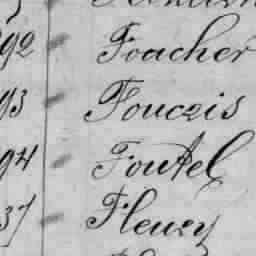 92 Foacher
93 Fouczis
94 Foutel
37 Fleury